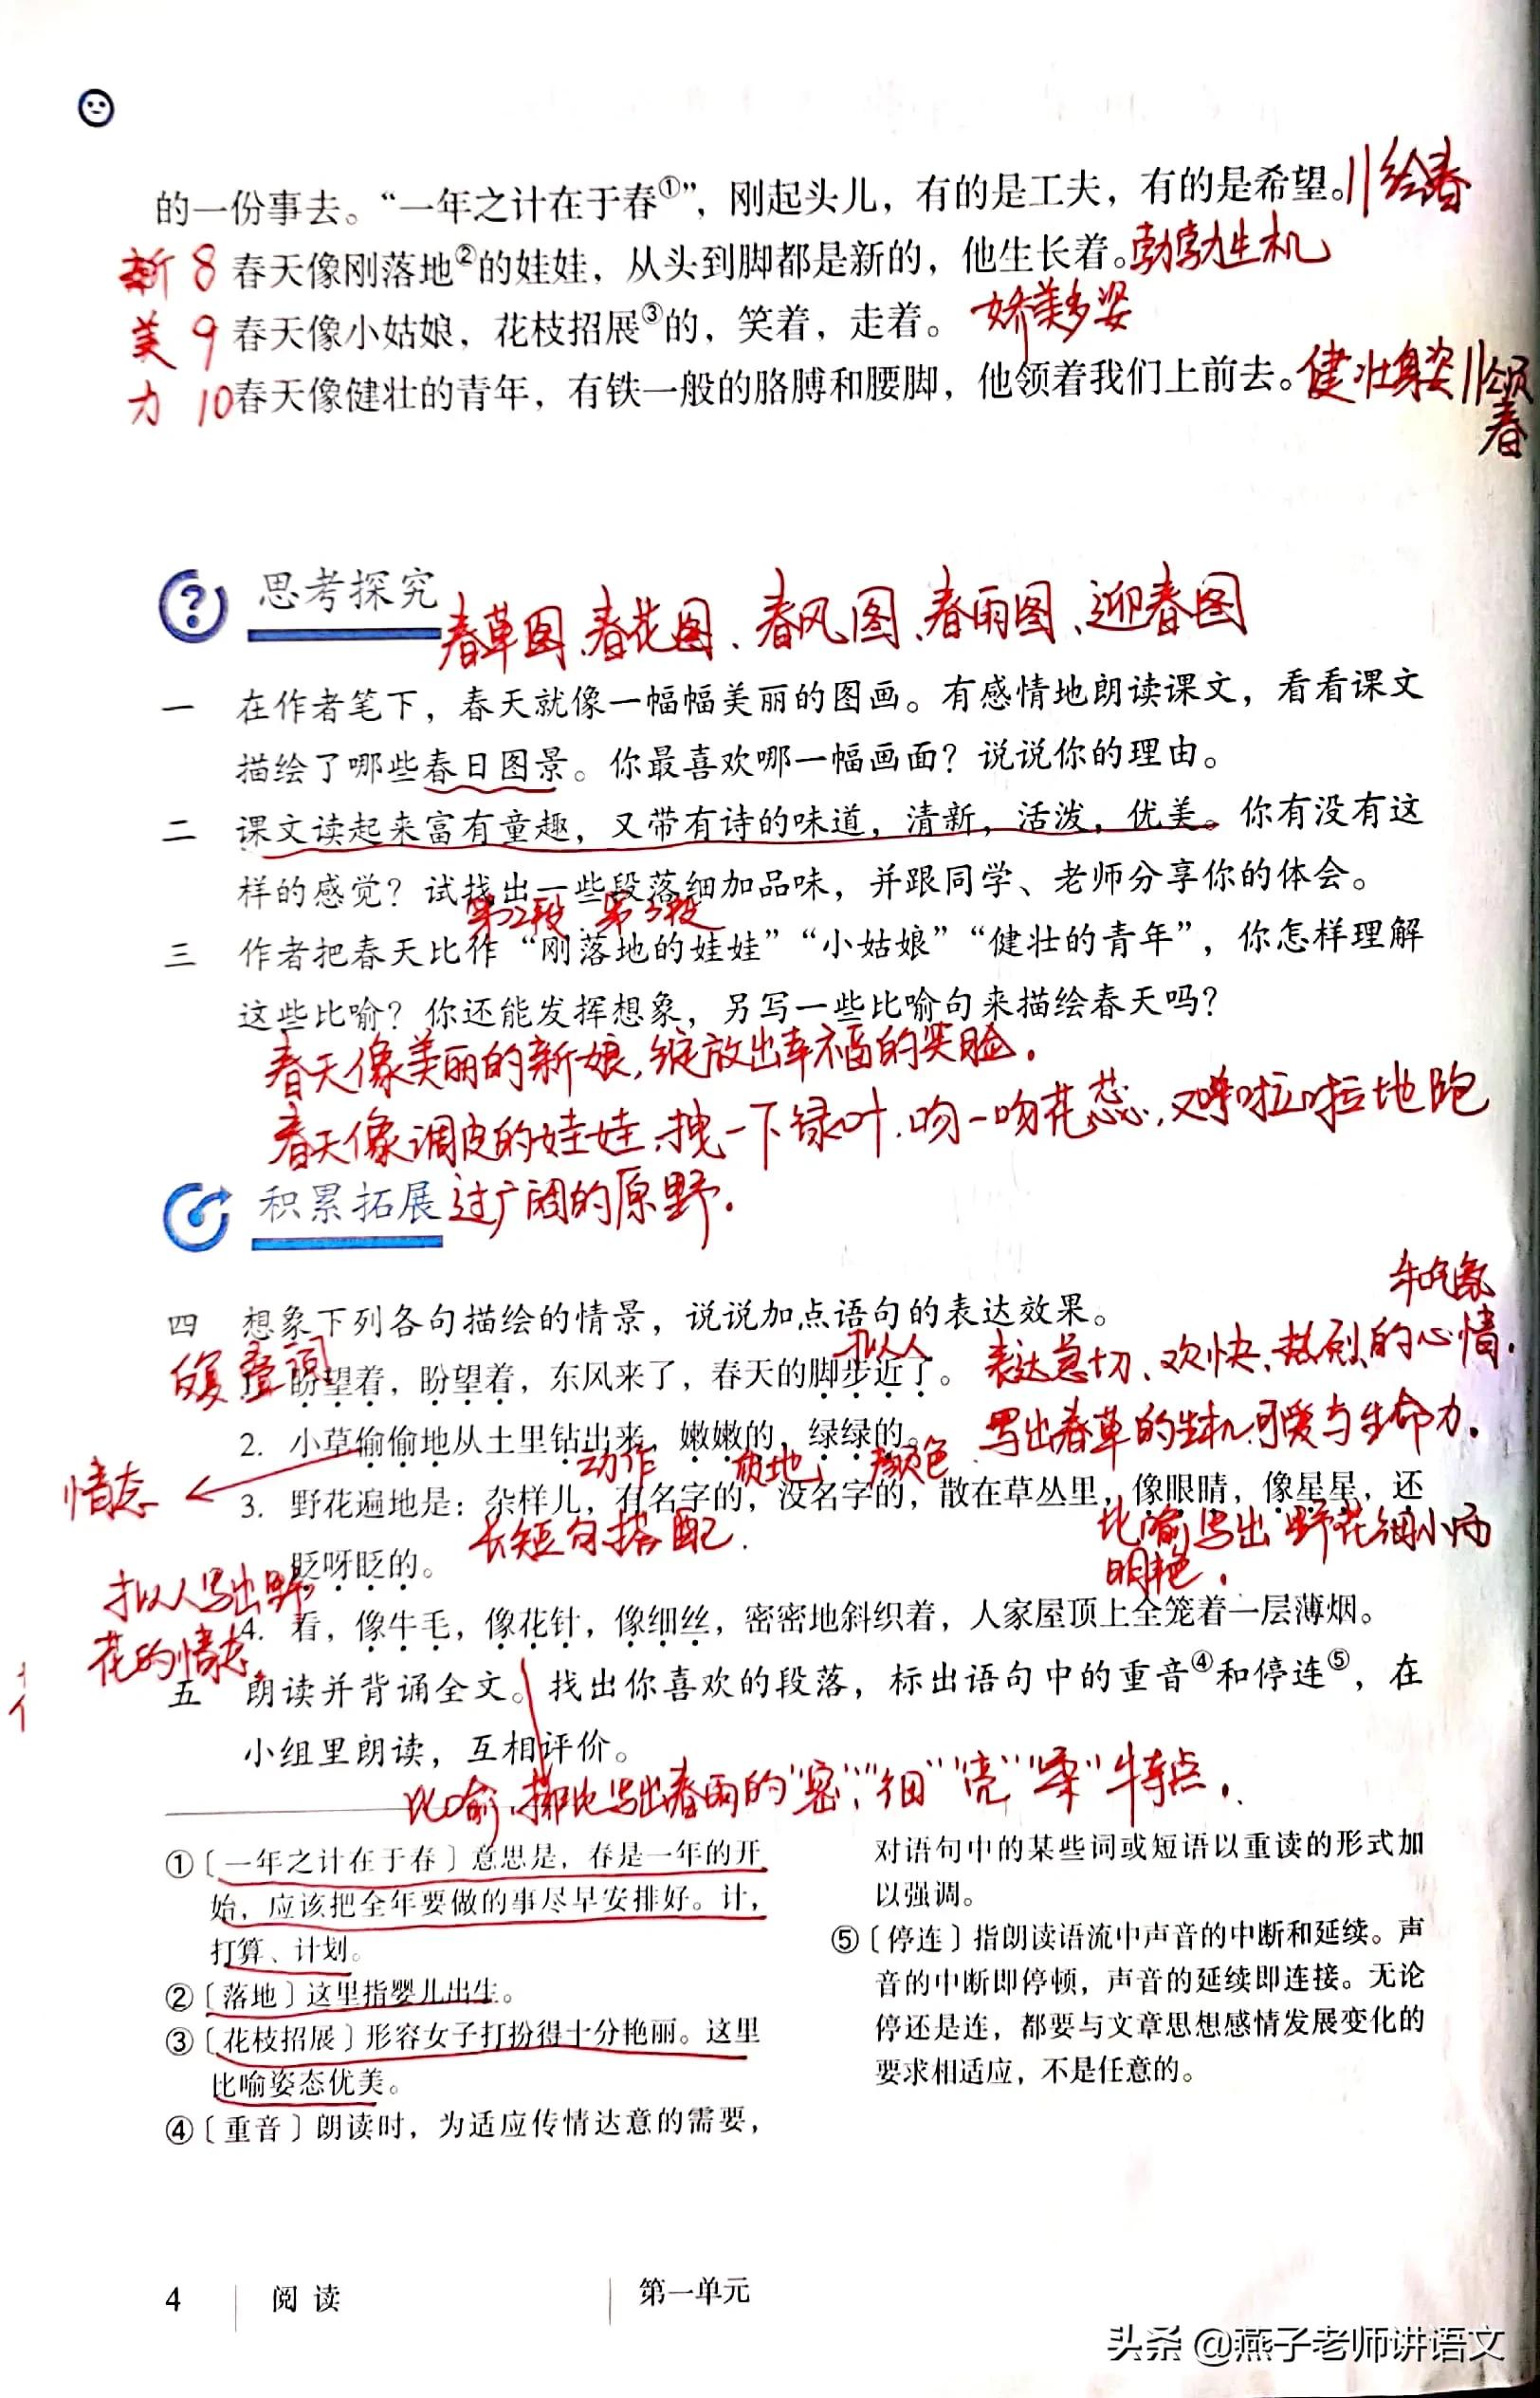 的一份事去。“一年之计在于春①”，刚起头儿，有的是工夫，有的是希望。||绘春
新 8 春天像刚落地②的娃娃，从头到脚都是新的，他生长着。勃勃生机
美 9 春天像小姑娘，花枝招展③的，笑着，走着。 娇美多姿
力 10 春天像健壮的青年，有铁一般的胳膊和腰脚，他领着我们上前去。健壮身姿||颂春
思考探究
春草图、春花图、春风图、春雨图、迎春图
一 在作者笔下，春天就像一幅幅美丽的图画。有感情地朗读课文，看看课文
描绘了哪些春日图景。你最喜欢哪一幅画面？说说你的理由。
二 课文读起来富有童趣，又带有诗的味道，清新，活泼，优美。你有没有这
样的感觉？试找出一些段落细加品味，并跟同学、老师分享你的体会。
第2段 第3段
三 作者把春天比作“刚落地的娃娃”“小姑娘”“健壮的青年”，你怎样理解
这些比喻？你还能发挥想象，另写一些比喻句来描绘春天吗？
春天像美丽的新娘，绽放出幸福的笑脸。
春天像调皮的娃娃，拽一下绿叶，吻一吻花蕊，又哗啦啦地跑
积累拓展 过广阔的原野。
四 想象下列各句描绘的情景，说说加点语句的表达效果。
反复 叠词 拟人
1. 盼望着，盼望着，东风来了，春天的脚步近了。 表达急切、欢快、热烈的心情。
2. 小草偷偷地从土里钻出来，嫩嫩的，绿绿的。 写出春草的生机可爱与生命力。
情态 动作 质地 颜色
3. 野花遍地是：杂样儿，有名字的，没名字的，散在草丛里，像眼睛，像星星，还
眨呀眨的。 长短句搭配. 比喻写出野花细小而
明艳。
拟人写出野
花的情态。
4. 看，像牛毛，像花针，像细丝，密密地斜织着，人家屋顶上全笼着一层薄烟。
五 朗读并背诵全文。找出你喜欢的段落，标出语句中的重音④和停连⑤，在
小组里朗读，互相评价。
比喻、排比写出春雨的“密”“细”“亮”“柔”特点。
①〔一年之计在于春〕意思是，春是一年的开
始，应该把全年要做的事尽早安排好。计，
打算、计划。
②〔落地〕这里指婴儿出生。
③〔花枝招展〕形容女子打扮得十分艳丽。这里
比喻姿态优美。
④〔重音〕朗读时，为适应传情达意的需要，
对语句中的某些词或短语以重读的形式加
以强调。
⑤〔停连〕指朗读语流中声音的中断和延续。声
音的中断即停顿，声音的延续即连接。无论
停还是连，都要与文章思想感情发展变化的
要求相适应，不是任意的。
4 阅读 第一单元
头条 @燕子老师讲语文